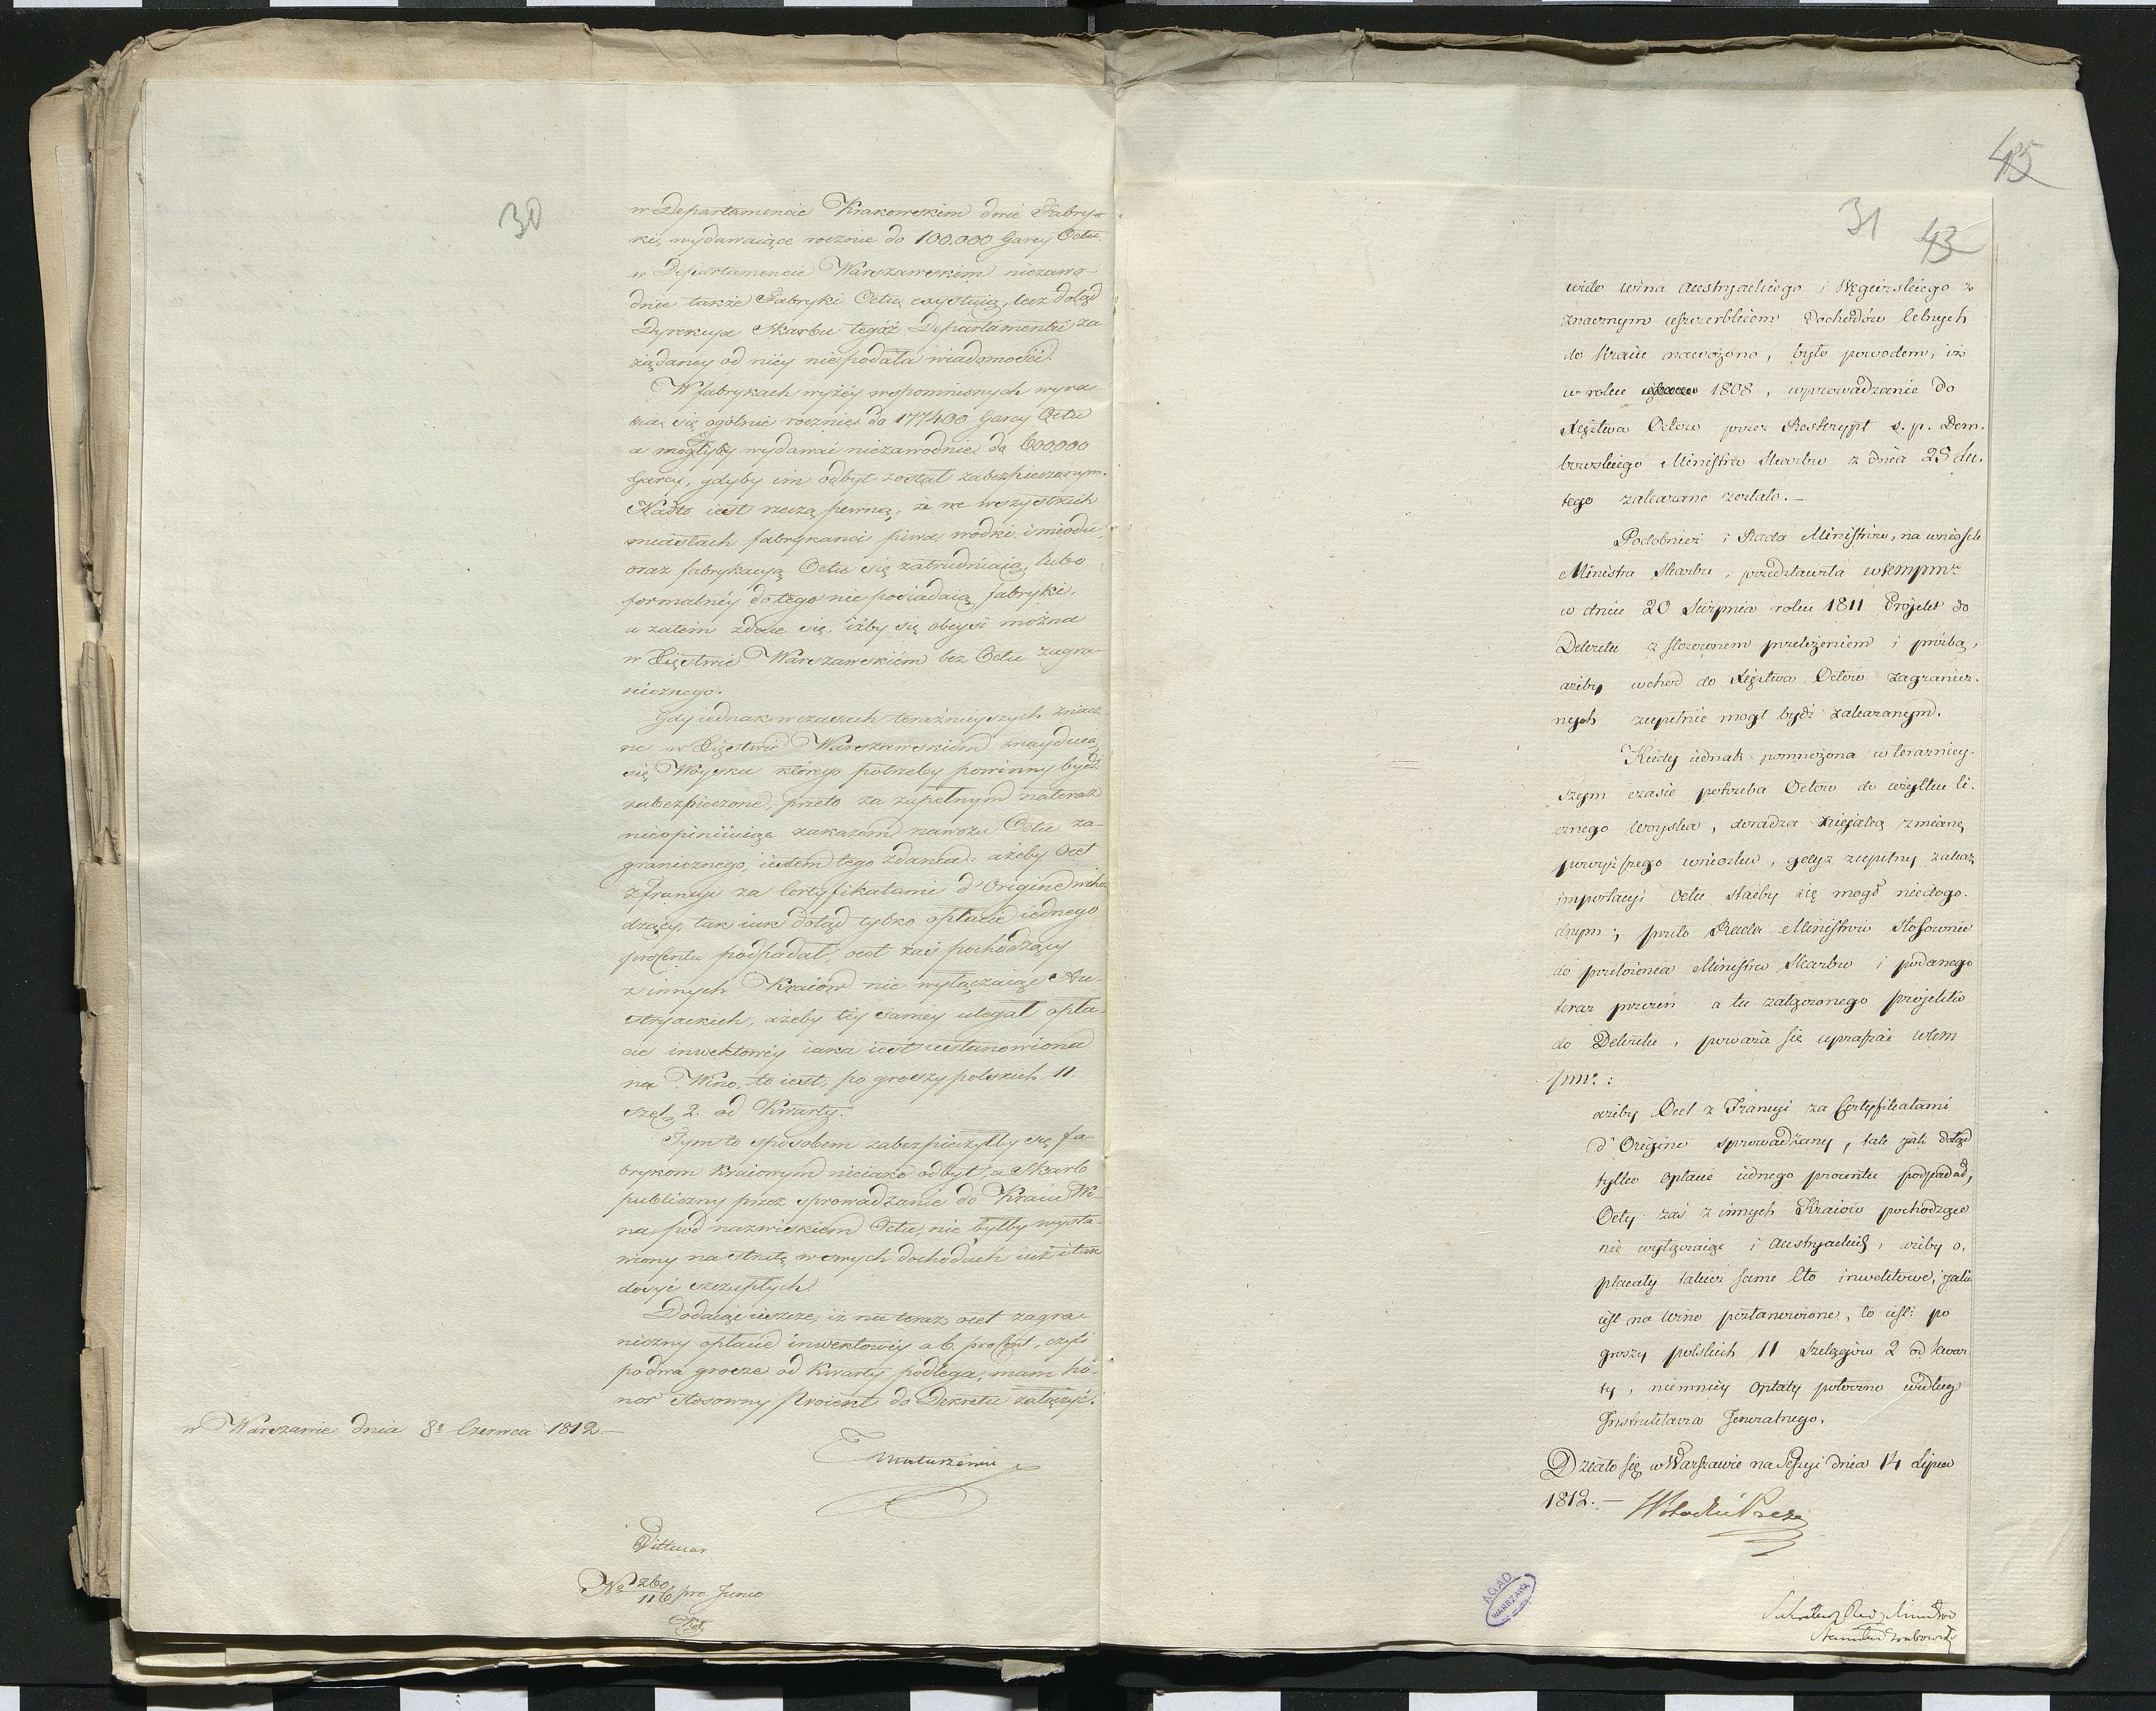 30
w Departamencie Krakowskim dwie Fabry-
ki, wydawaiące rocznie do 100.000 Garcy Octu.
w Departamencie Warszawskim niezawo-
dnie także Fabryki Octu exystuią, lecz dotąd
Dyrekcya Skarbu tegóż Departamentu za
żądaney od niey nie podała wiadomości.
W fabrykach wyżéy wspomnionych wyra-
bia się ogólnie rocznie do 177400 Garcy Octu
a mogłyby wydawać niezawodnie do 600,000
Garcy, gdyby im odbyt został zabezpieczonym.
Nadto iest rzeczą pewną, że we wszystkich
miastach fabrykanci piwa wódki i miodu,
oraz fabrykacyą Octu się zatrudniaią, lubo
formalnéy do tego nie posiadaią fabryki,
a zatém zdaie się, iżby się obeyść można
w Xięstwie Warszawskiém bez Octu zagra-
nicznego.
Gdy iednak w czasach teraźnieyszych znacz-
ne w Xięstwie Warszawskiém znayduią
się Woyska którego potrzeby powinny bydź
zabezpieczone, przeto za zupełnym nateraz
nieopiniiuiąc zakazem nawozu Octu za-
granicznego, iestem tego zdania: ażeby Ocet
z francyi za Certyfikatami d'Origine wcho-
dzący, tak iak dotąd tylko opłacie iednego
procentu podpadał, ocet zaś pochodzący
z innych Kraiów nie wyłączaiąc Au-
stryackich, ażeby téy samey ulegał opła-
cie inwektowéy iaka iest ustanowiona
na Wino, to iest, po groszy polskich 11.
szel. 2. od Kwarty.
Tym to sposobem zabezpieczyłby się fa-
brykom kraiowym nieiako odbyt, a Skarb
publiczny przez sprowadzanie do Kraiu Wi-
na pod nazwiskiem Octu, nie byłby wysta-
wiony na stratę w swych dochodach iuż i tak
dosyć szczupłych.
Dodaiąc ieszcze, iż na teraz ocet zagra-
niczny opłacie inwektowéy a 6. procent, czyli
po dwa grosze od Kwarty podlega, mam ho-
nor stosowny Proiekt do Dekretu załączyć.
w Warszawie dnia 8º Czerwca 1812.—
Matuszewic
Dittmar
Nº 260/116 pro Junio
45
31 43
wiele wina Austryackiego i Węgierskiego z
znacznym uszczerbkiem Dochodów Celnych
do Kraiu nawożono, było powodem, iż
w roku 1808, wprowadzanie do
Xięstwa Octów przez Reskrypt ś. p. Dem-
bowskiego Ministra Skarbu z dnia 28 Lu-
tego zakazane zostało.—
Podobnież i Rada Ministrów, na wniosek
Ministra Skarbu, przedstawiła wtempmie
w dniu 20 Sierpnia roku 1811 Projekt do
Dekretu z stosownem przełożeniem i prośbą,
ażeby wchod do Xięstwa Octów zagranicz-
nych zupełnie mogł bydź zakazanym.
Kiedy iednak pomnożona w teraźniey-
szym czasie potrzeba Octów do użytku li-
cznego woyska, doradza nieiaką zmianę
powyższego wniosku, gdyż zupełny zakaz
importacyi Octu stałby się mogł niedogo-
dnym; przeto Rada Ministrów stosownie
do przełożenia Ministra Skarbu i podanego
teraz przezeń a tu załączonego projektu
do Dekretu, poważa się upraszać wtem
pmie:
ażeby Ocet z Francyi za Certyfikatami
d'Origine sprowadzany, tak jak dotąd
tylko opłacie iednego procentu podpadał,
Octy zaś z innych Kraiów pochodzące
nie wyłączaiąc i Austryackich, ażeby o-
płacały takież same Cło inwektowe, jakie
iest na wino postanowione, to iest: po
groszy polskich 11 Szelągów 2 od kwar
ty, niemniéy opłaty poboczne według
Instruktarza Jeneralnego.
Działo się w Warszawie na Sessyi dnia 14 Lipca
1812.—
AGAD
WARSZAWA
Sekretarz Rady Ministrów
Stanisław Grabowski